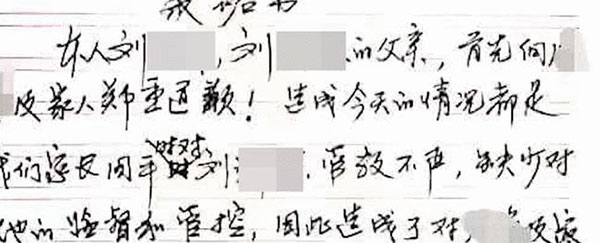 本人刘,刘的父亲,首先向
及家人郑重道歉!造成今天的情况都是
我们家长因平时对刘.管教不严,缺少对
他的监督和管控,因此造成了对及家